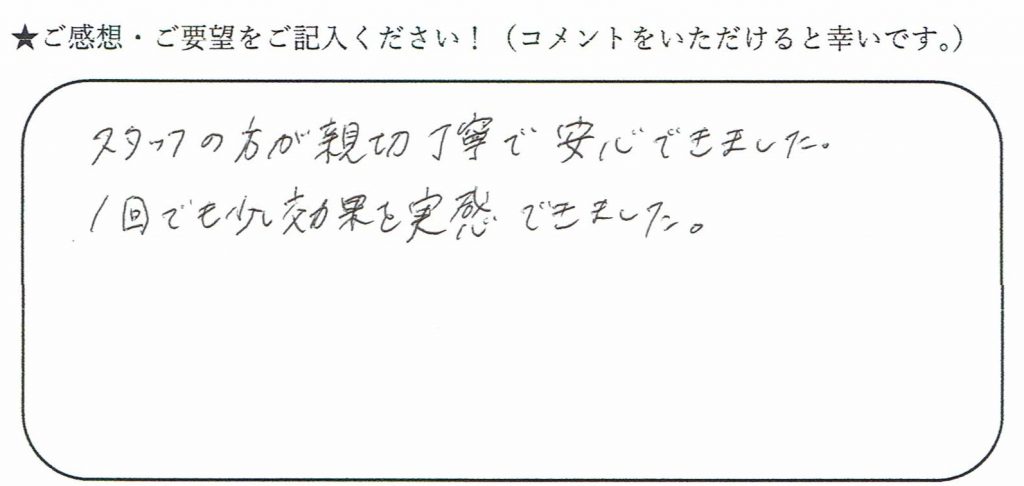 ★ご感想・ご要望をご記入ください！（コメントをいただけると幸いです。）
スタッフの方が親切丁寧で安心できました。
1回でも少し効果を実感できました。